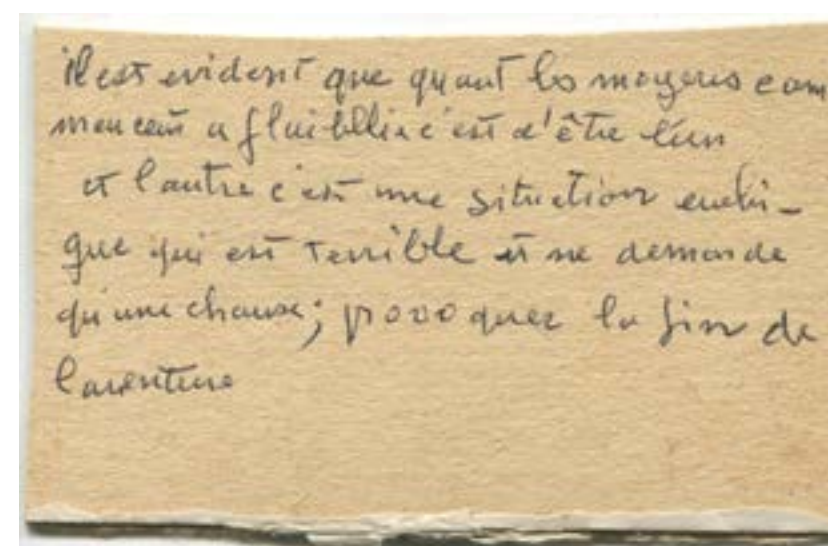 il est evident que quant les moyens com
mencent a flaibllir c'est d'être l'un
et l'autre c'est une situation
que qui est terrible et ne demande
qu'une chause; provoquer la fin de
l'aventure